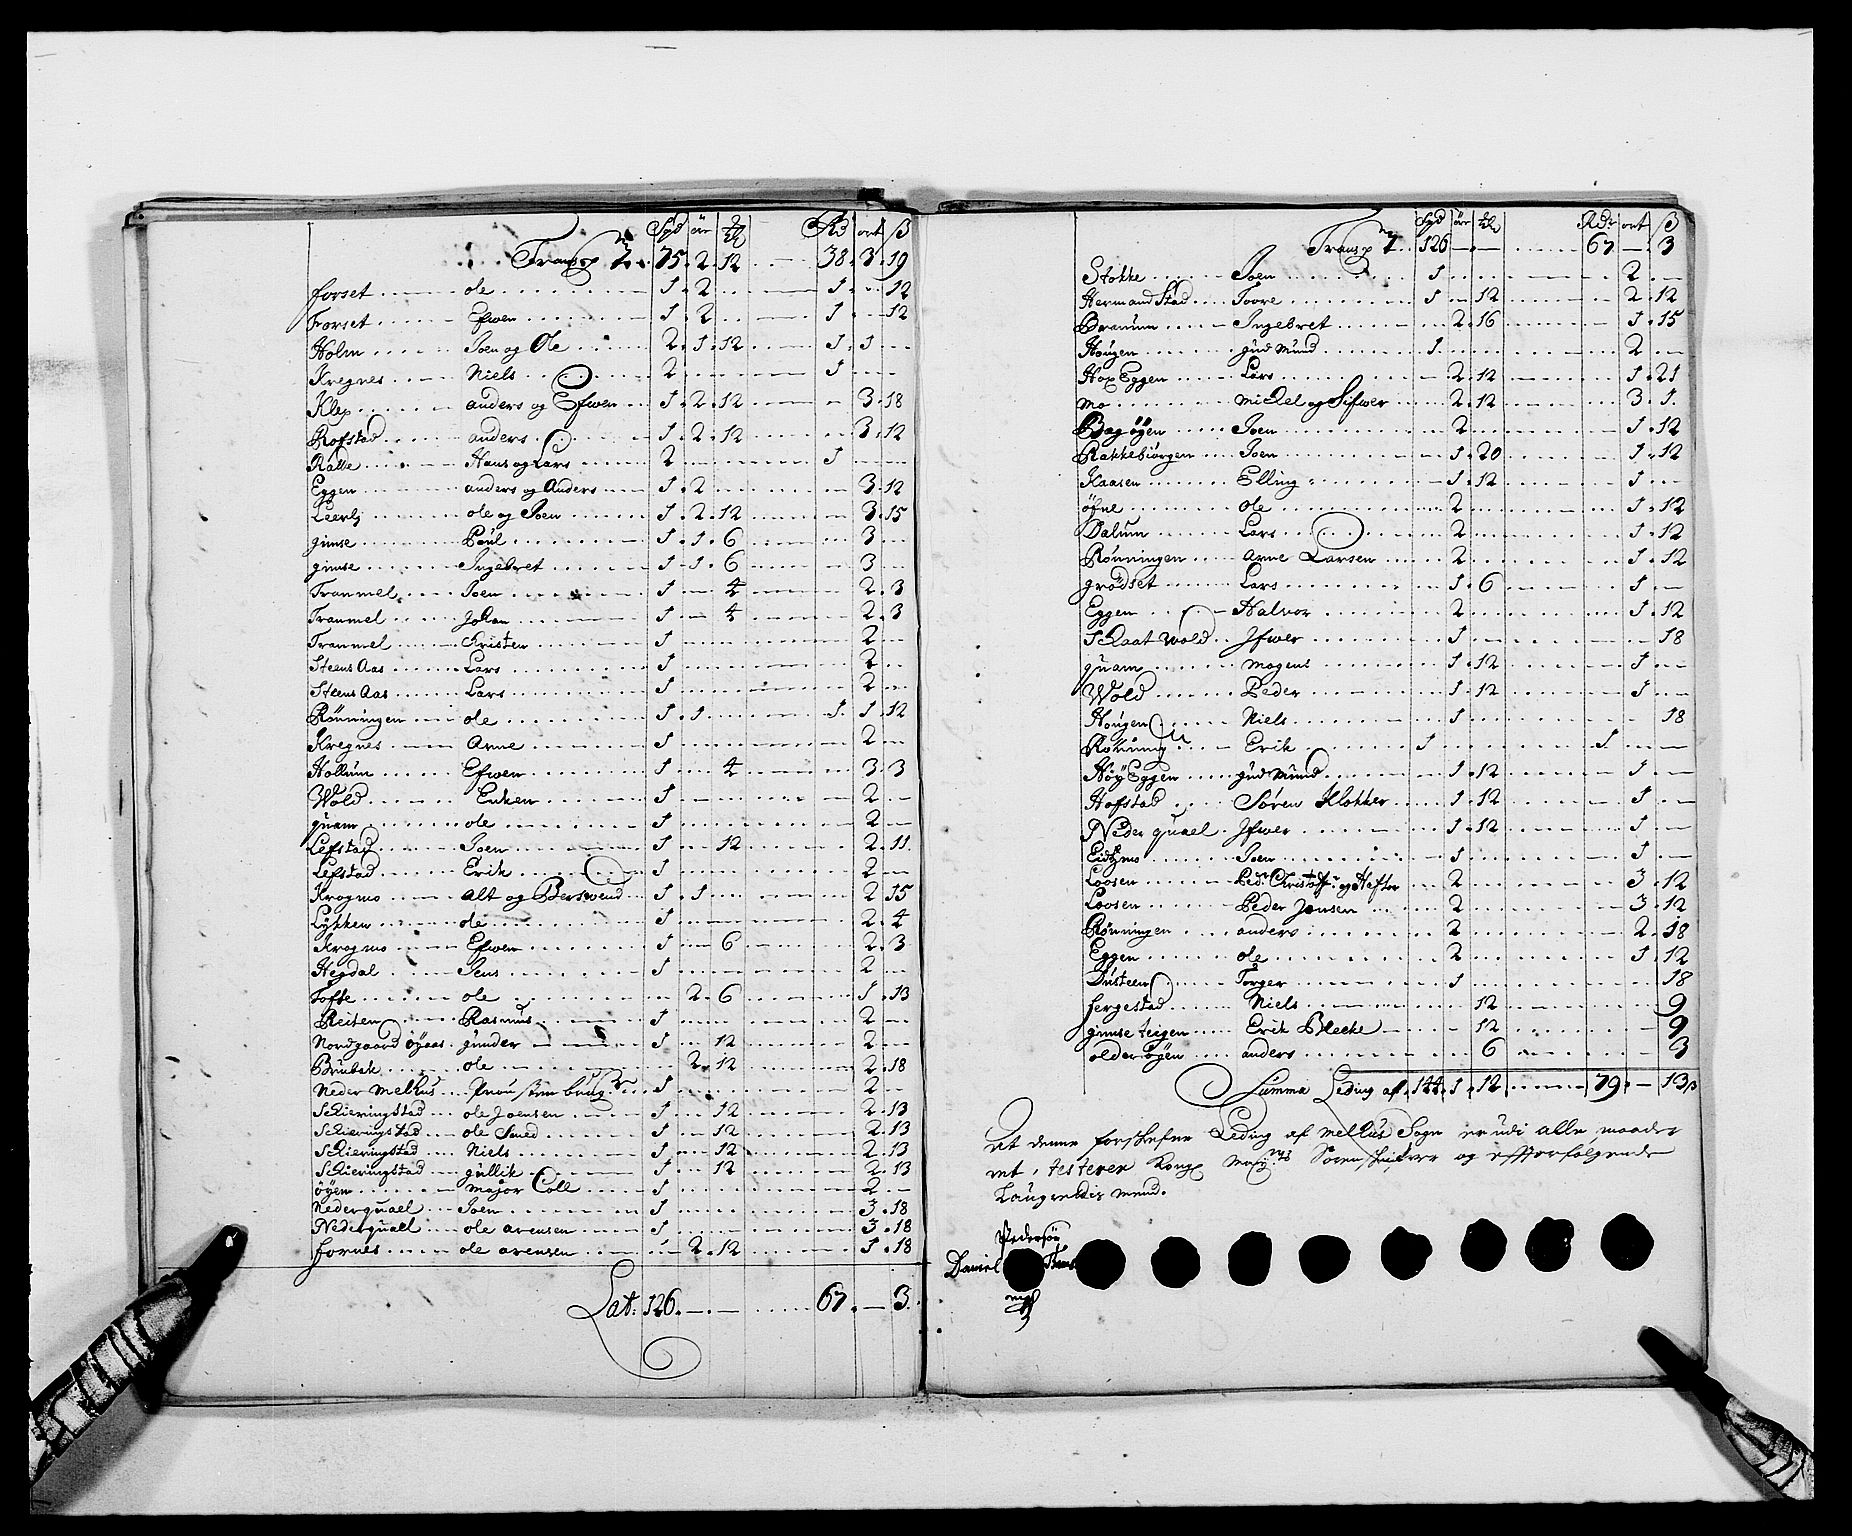 Spd ör ℔ Rd ort β
Transp 75. 2. 12 38. 3. 19
forset ole 1. 2 1. 12
Forset Efwen 1. 2 1 12
Holm Joen og Ole 2. 1. 12 1. 1
Kregnes Niels 2 1
Klep anders og Efwen 1. 2. 12 3. 18
Rofstad anders 1. 2. 12 3. 12
Ralle Hans og Lars 2 1
Eggen anders og Anders 1. 2 3. 12
Leerli ole og Joen 1. 2. 12 3. 15
gimse Poul 1. 1. 6 3
gimse Ingebret 1. 1. 6 3
Tranmel Joen 1 4 2. 3
Tranmel Johan 1 4 2. 3
Tranmel Cristen 1 2
Steens Aas Lars 1 2
Steens Aas Lars 1 2
Rönningen ole 1. 1 1. 1. 12
Kregnes Arne 1 2
Hollum Efwen 1 4 3. 3
Wold Enken 1 2
quam ole 1 2
Lefstad Joen 1 12 2. 11
Lefstad Erik 1 2
Krogmo Alt og Berswend 1. 1 2. 15
Lykken ole 1 2. 4
Krogmo Efwen 1 6 2. 3
Hegdal Jens 1 2
Tofte ole 2. 6 1. 13
Reiten Rasmus 1 2
Nordgaard öyaas gunder 1 12 2
Brubak ole 2. 12 2. 18
Neder Melhus 1 2
Schieringstad ole Joensen 1 12 2. 13
Schieringstad ole Smed 1 12 2. 13
Schieringstad Niels 1 12 2. 13
Schieringstad gullik 1 12 2. 13
öyen Major Coll 1 2
Nederquael Joen 1 3. 18
Nederquael ole arensen 1 3. 18
fornes ole arensen 2. 12 1. 18
Lat: 126. 67. 3
Spd ör ℔ Rd: ort β
Transp 126 67 3
Stokke Joen 1 2
Hermandstad Toore 1 12 2. 12
Branum Ingebret 2. 16 1. 15
Hougen gudmund 1 2
Hop Eggen Lars 2. 12 1. 21
mo Mickel og Sifwer 2. 12 3. 1
Bagöyen Joen 2 1. 12
Rakkebiörgen Joen 1. 20 1. 12
Kaasen Elling 1. 12 1
öfne ole 2 1. 12
Dalum Lars 2 1. 12
Rönningen Arne Larsen 2 1. 12
grödset Lars 1. 6 1
Eggen Halvor 2 1. 12
Skaatwold Jfwer 1 18
quam Mogens 1. 12 1
Wold Peder 1. 12 1
Hougen Niels 1 18
Rönning Erik 1 1
Höy Eggen gudmund 1. 12 1
Hofstad Sören Klokker 1. 12 1
Neder quael Jfwer 1. 12 1
Eidsmo Joen 1 1
Loosen Ped. Christofr: og Hefter 2 3. 12
Loosen Peder Jensen 2 3. 12
Rönningen anders 2 2. 18
Eggen ole 2 1. 12
Törger 1 18
fergestad Niels 12 9
gimse teigen Erik Blecke 12 9
oldersöyen anders 6 3
Summa Leding af 144. 1. 12 79. 13 β
At denne forskrefne Leding af Melhus Sogn er udi alle maader
ret, testerer Kongl Mayts Sorenskriver og effterfölgende
Laugrettis mend.
Pedersön
Daniel